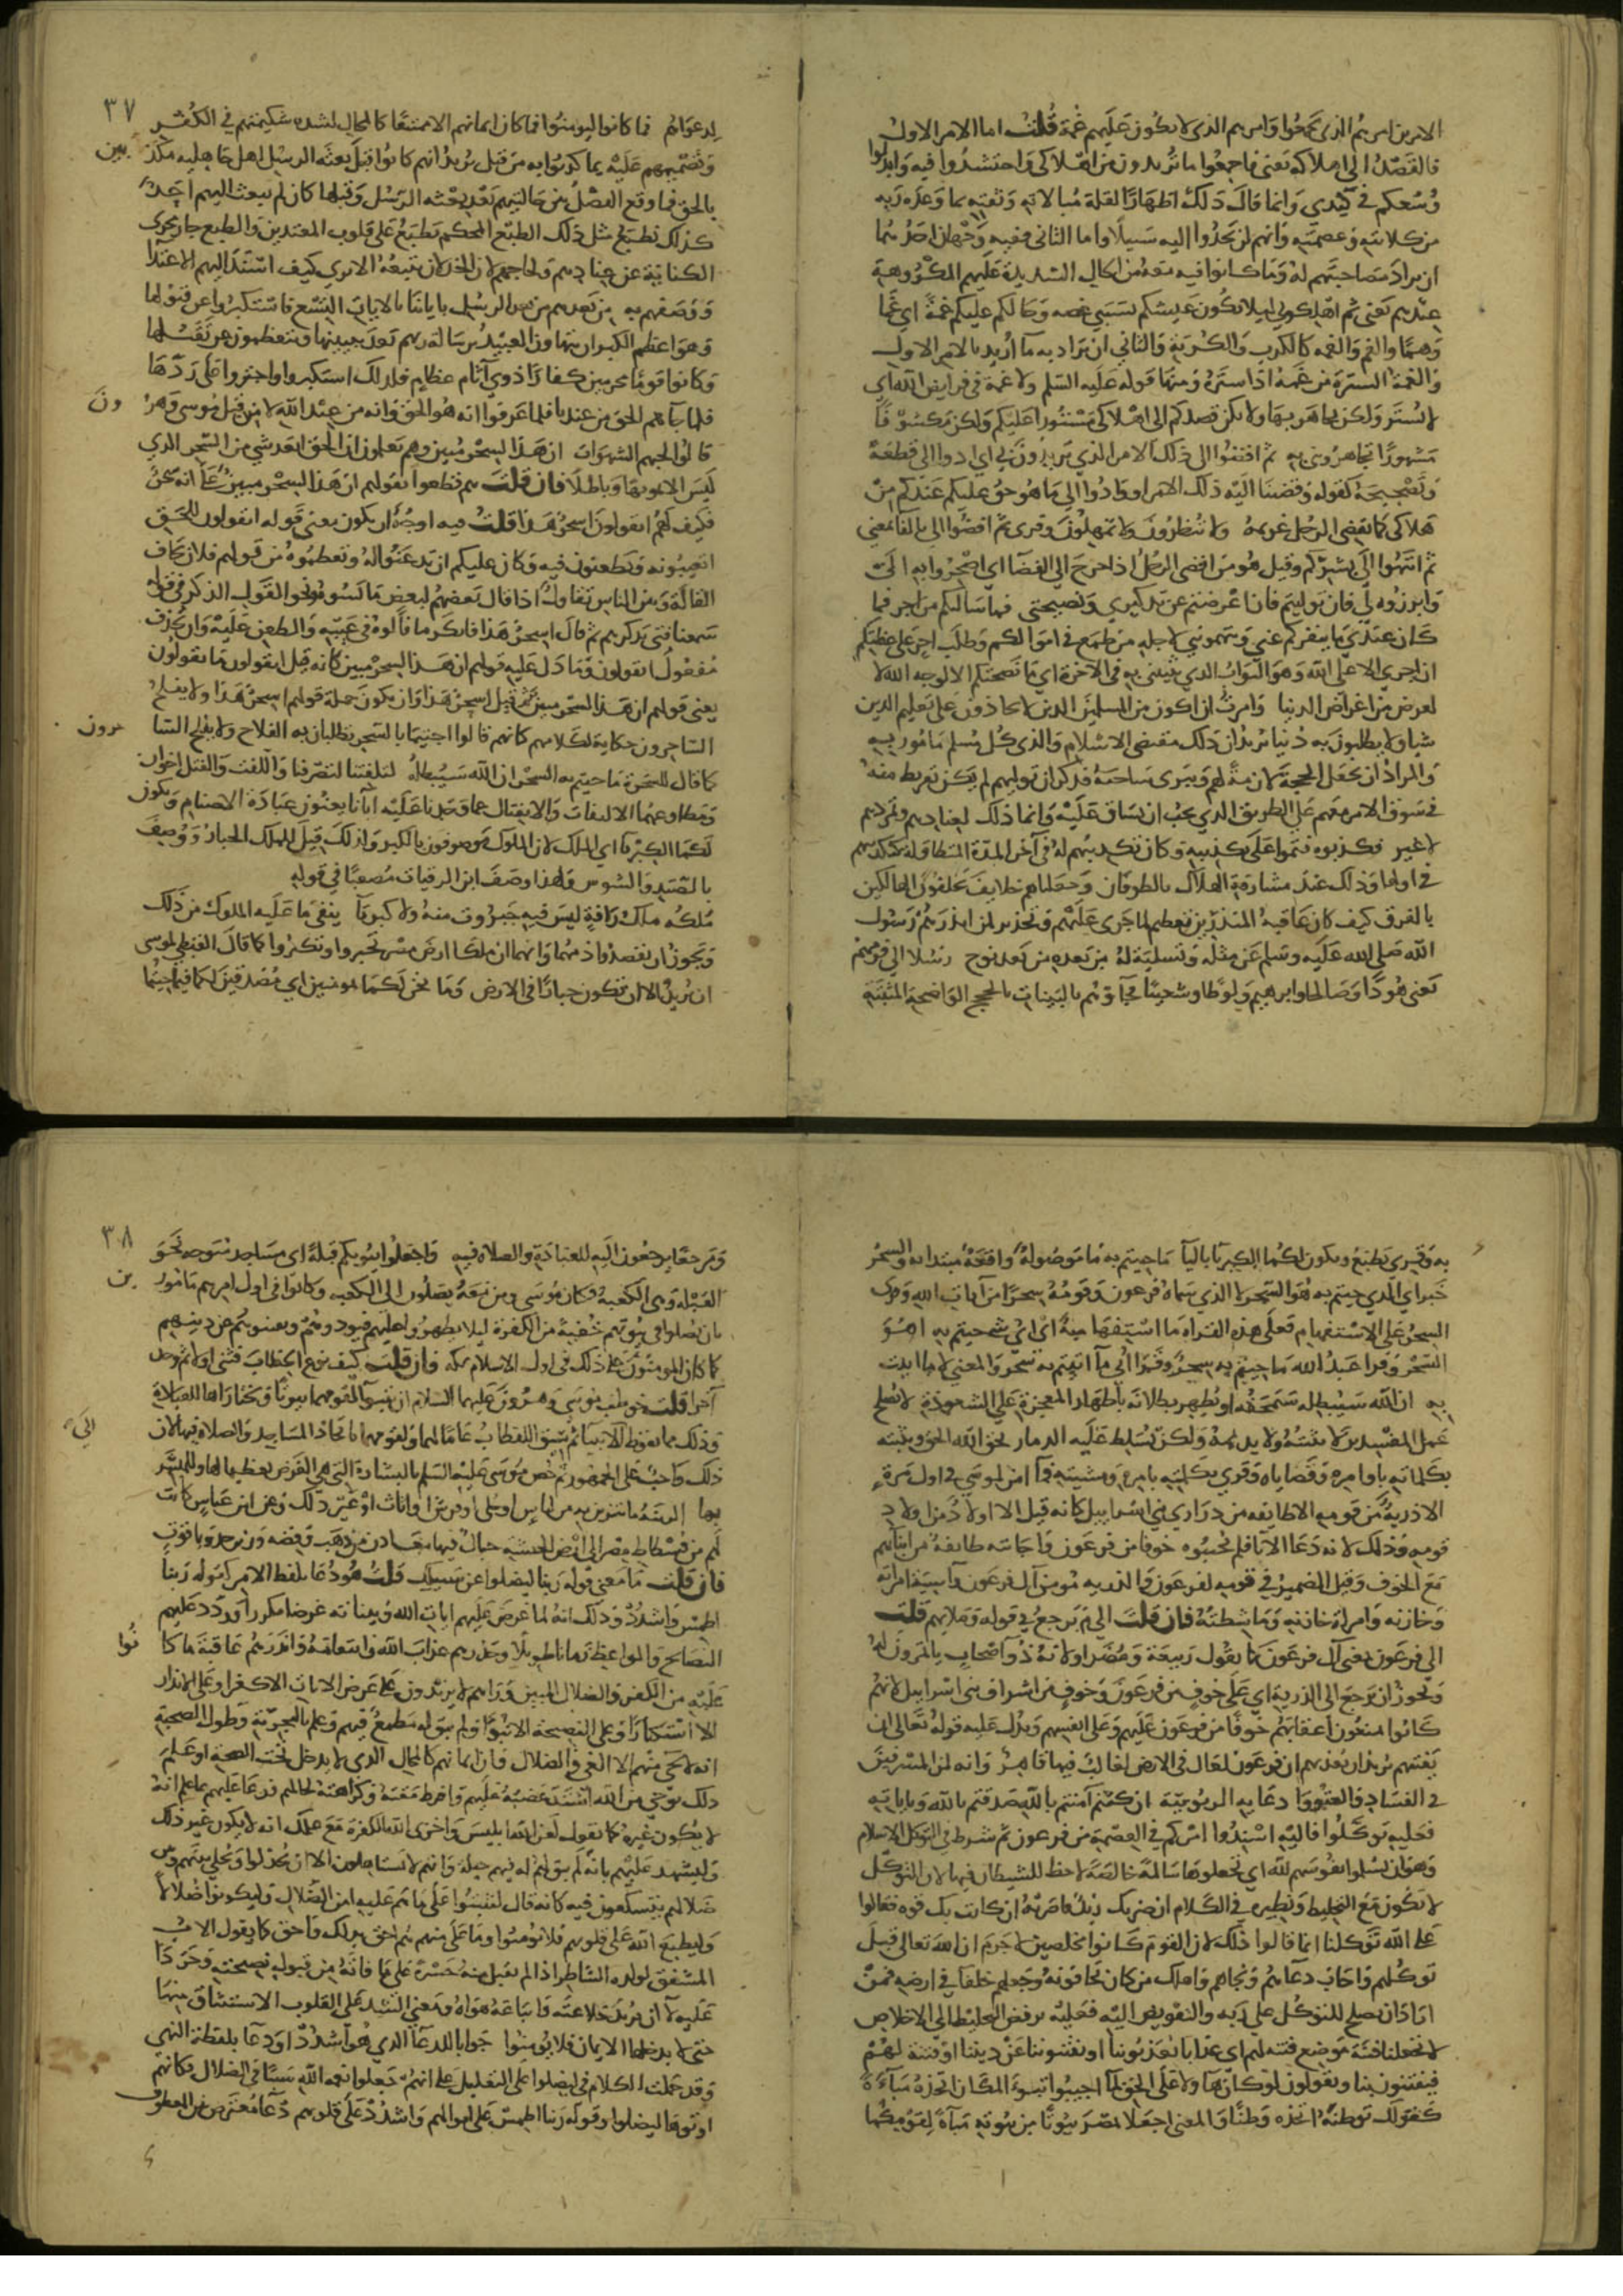 الامرين امرهم الذي يجمعوا وامرهم الذي لا يكون عليهم غمة قلت اما الامر الاول
فالقصد الى اهلاكه يعني فاجمعوا ما تريدون من اهلاكي واحتشدوا فيه وابذلوا
وسعكم في كيدي وانما قال ذلك اظهارا لقلة مبالاته وثقته بما وعده ربه
من كلاءته وعصمته وانهم لن يجدوا اليه سبيلا واما الثاني ففيه وجهان احدهما
ان يراد مصاحبتهم له وما كانوا فيه معه من الحال الشديدة عليهم المكروهة
عندهم يعني ثم اهلكوني ليلا يكون عيشكم بسببي غصه وحالكم عليكم غمة اي غما
وهما والغم والغمه كالكرب والكربة والثاني ان يراد به ما اريد بالامر الاول
والغمة السترة من غمه اذا ستره ومنها قوله عليه السلم ولا غمة في فرايض الله اي
لا تستر ولكن يجاهر بها ولا يكن قصدكم الى اهلاكي مستورا عليكم ولكن مكشوفا
مشهورا تجاهرونني به ثم اقضوا الى ذلك الامر الذي تريدون بي اي ادوا الى قطعه
وتصحيحه كقوله وقضينا اليه ذلك الامر او ادوا الي ما هو حق عليكم عندكم من
هلاكي كما يقضي الرجل غريمه ولا تنظرون ولا تمهلون وقرى ثم افضوا الى بالفا بمعنى
ثم انتهوا الى بشركم وقيل هو من افضى الرجل اذا خرج الى الفضا اي اصحروا به الى
وابرزوه لي فان توليتم فان اعرضتم عن تذكيري ونصيحتي فما سالتكم من اجر فما
كان عندي ما ينفركم عني وتتهموني لاجله من طمع في اموالكم وطلب اجر على عظتكم
ان اجري الا على الله وهو الثواب الذي يثيبني به في الاخرة اي ما نصحتكم الا لوجه الله لا
لغرض من اغراض الدنيا وامرت ان اكون من المسلمين الذين لا ياخذون على تعليم الدين
شيا ولا يطلبون به دنيا يريد ان ذلك مقتضى الاسلام والذي كل مسلم مامور به
والمراد ان يجعل الحجة لازمة لهم ويبرى ساحته فذكر ان توليهم لم يكن تفريط منه
في سوق الامر معهم على الطريق الذي يجب ان يساق عليه وانما ذلك لعنادهم وتمردهم
لا غير فكذبوه فتموا على تكذيبه وكان تكذيبهم له في آخر المدة المتطاولة كتكذيبهم
في اولها وذلك عند مشارفة الهلاك بالطوفان وجعلناهم خلايف يخلفون الهالكين
بالغرق كيف كان عاقبة المنذرين تعظيم لما جرى عليهم وتحذير لمن انذرهم رسول
الله صلى الله عليه وسلم عن مثله وتسلية له من بعده من بعد نوح رسلا الى قومهم
يعني هودا وصالحا وابرهيم ولوطا وشعيبا فجآؤهم بالبينات بالحجج الواضحة المثبتة
٣٧
لدعواهم فما كانوا ليومنوا فما كان ايمانهم الا ممتنعا كالمحال لشدة شكيمتهم في الكفر
وتصميمهم عليه بما كذبوا به من قبل يريد انهم كانوا قبل بعثه الرسل اهل جاهليه مكذبين
بالحق فما وقع الفصل بين حالتيهم بعد بعثه الرسل وقبلها كان لم يبعث اليهم احد
كذلك نطبع مثل ذلك الطبع المحكم نطبع على قلوب المعتدين والطبع جار مجرى
الكناية عن عنادهم ولجاجهم لان الخذلان يتبعه الا ترى كيف اسند اليهم الاعتدا
ووصفهم به من بعدهم من بعد الرسل باياتنا بالايات التسع فاستكبروا عن قبولها
وهو اعظم الكبر ان يتهاون العبيد برسالة ربهم بعد تبينها ويتعظموا عن تقبلها
وكانوا قوما مجرمين كفارا ذوي آثام عظام فلذلك استكبروا واجتروا على ردها
فلما جآءهم الحق من عندنا فلما عرفوا انه هو الحق وانه من عند الله لا من قبل موسى وهرون
قالوا لحبهم الشهوات ان هذا لسحر مبين وهم يعلمون ان الحق ابعد شي من السحر الذي
ليس الا تمويها وباطلا فان قلت هم قطعوا بقولهم ان هذا لسحر مبين على انه سحر
فكيف قيل لهم اتقولون اسحر هذا قلت فيه اوجه ان يكون معنى قوله اتقولون للحق
اتعيبونه وتطعنون فيه وكان عليكم ان تذعنوا له وتعظموه من قولهم فلان يخاف
القالة وبين الناس تقاول اذا قال بعضهم لبعض ما يسوه ونحو القول الذكر في قوله
سمعنا فتى يذكرهم ثم قال اسحر هذا فانكر ما قالوه في عيبه والطعن عليه وان يحذف
مفعول اتقولون وما دل عليه قولهم ان هذا لسحر مبين كانه قيل اتقولون ما تقولون
يعني قولهم ان هذا لسحر مبين ثم قيل اسحر هذا وان يكون جملة قولهم اسحر هذا ولا يفلح
الساحرون حكاية لكلامهم كانهم قالوا اجيتما بالسحر تطلبان به الفلاح ولا يفلح الساحرون
كما قال للسحرة ما جيتم به السحر ان الله سيبطله لتلفتنا لتصرفنا واللفت والفتل اخوان
ومطاوعهما الالتفات والانفتال عما وجدنا عليه آبآنا يعنون عبادة الاصنام وتكون
لكما الكبريا اي الملك لان الملوك موصوفون بالكبر ولذلك قيل للملك الجبار ووصف
بالصيد والشوس ولهذا وصف ابن الرقيات مصعبا في قوله
ملكه ملك رافة ليس فيه جبروت منه ولا كبريآ ينفي ما عليه الملوك من ذلك
ويجوز ان يقصدوا ذمهما وانهما ان ملكا ارض مصر تجبروا وتكبروا كما قال القبطي لموسى
ان تريد الا ان تكون جبارا في الارض وما نحن لكما بمومنين اي مصدقين لكما فيما جيتما
به وقرى يطبع ويكون لكما الكبريا بالياء ما جيتم به ما موصولة واقعة مبتدا به والسحر
خبر اي الذي جيتم به هو السحر لا الذي سماه فرعون وقومه سحرا من آيات الله وقرى
السحر على الاستفهام فعلى هذه القراه ما استفهامية اي اي شي جيتم به اهو
السحر وقرا عبد الله ما جيتم به سحر وقرا ابي ما اتيتم به سحر والمعنى لا ما اتيت
به ان الله سيبطله سيمحقه او يظهر بطلانه باظهار المعجزة على الشعوذة لا يصلح
عمل المفسدين لا يثبته ولا يديمه ولكن يسلط عليه الدمار يحق الله الحق ويثبته
بكلماته باوامره وقضاياه وقرى بكلمته بامره ومشيته فمآ امن لموسى في اول مرة
الا ذرية من قومه الا طايفه من ذراري بني اسراييل كانه قيل الا اولاد من اولاد
قومه وذلك لانه دعا الآبا فلم يجيبوه خوفا من فرعون واجابته طايفة من ابنآيهم
مع الخوف وقيل الضمير في قومه لفرعون والذريه مومن آل فرعون وآسية امراته
وخازنه وامراة خازنه وماشطته فان قلت الي م يرجع في قوله وملايهم قلت
الى فرعون بمعنى آل فرعون كما يقول ربيعة ومضر او لانه ذو اصحاب ياتمرون له
ويجوز ان يرجع الى الذرية اي على خوف من فرعون وخوف من اشراف بني اسراييل لانهم
كانوا يمنعون اعقابهم خوفا من فرعون عليهم وعلى انفسهم ويدل عليه قوله تعالى ان
يفتنهم يريد ان يعذبهم ان فرعون لعال في الارض لغالب فيها قاهر وانه لمن المسرفين
في الفساد والعتو و دعآيه الربوبية ان كنتم آمنتم بالله صدقتم بالله وباياته
فعليه توكلوا فاليه اسندوا امركم في العصمة من فرعون ثم شرط في التوكل الاسلام
وهو ان يسلموا نفوسهم لله اي يجعلوها سالمة خالصة لا حظ للشيطان فيها لان التوكل
لا يكون مع التخليط ونظيره في الكلام ان ضربك زيد فاضربه ان كانت بك قوه فقالوا
على الله توكلنا انما قالوا ذلك لان القوم كانوا مخلصين لا جرم ان الله تعالى قبل
توكلهم واجاب دعآهم ونجاهم واهلك من كان يخافونه وجعلهم خلفآ في ارضه فمن
اراد ان يصلح للتوكل على ربه والتفويض اليه فعليه برفض التخليط الى الاخلاص
لا تجعلنا فتنة موضع فتنه لهم اي عذاب يعذبوننا او يفتنوننا عن ديننا او فتنة لهم
يفتتنون بنا ويقولون لو كان هآولا على الحق لما اصيبوا تبوء المكان اتخذه مباءة
كقولك توطنه اتخذه وطنا والمعنى اجعلا بمصر بيوتا من بيوته مباءة لقومكما
٣٨
ومرجعا يرجعون اليه للعبادة والصلاة فيه واجعلوا بيوتكم قبلة اي مساجد متوجهة نحو
القبله وهي الكعبة وكان موسى ومن معه يصلون الى الكعبه وكانوا في اول امرهم مامورين
بان يصلوا في بيوتهم خفية من الكفرة ليلا يظهروا عليهم فيوذوهم ويفتنوهم عن دينهم
كما كان المومنون على ذلك في اول الاسلام بمكه فان قلت كيف نوع الخطاب فثنى اولا ثم وحد
آخرا قلت خوطب موسى وهرون عليهما السلام ان يتبوآ لقومهما بيوتا ويختاراها للعبادة
وذلك مما يفوض الى الانبيآ ثم سيق الخطاب عاما لهما ولقومهما باتخاذ المساجد والصلاة فيها لان
ذلك واجب على الجمهور ثم خص موسى عليه السلم بالبشارة التي هي الغرض تعظيما لها وللمبشر
بها الزينة ما يتزين به من لباس او حلي او فرش او اثاث او غير ذلك وعن ابن عباس كانت
لهم من فسطاط مصر الى ارض الحبشه جبال فيها معادن من ذهب وفضه وزبرجد وياقوت
فان قلت ما معنى قوله ربنا ليضلوا عن سبيلك قلت هو دعا بلفظ الامر كقوله ربنا
اطمس واشدد وذلك انه لما عرض عليهم ايات الله وبيناته عرضا مكررا وردد عليهم
النصايح والمواعظ زمانا طويلا وحذرهم عذاب الله وانتقامه وانذرهم عاقبة ما كانوا
عليه من الكفر والضلال المبين ورآهم لا يزيدون على عرض الايات الا كفرا وعلى الانذار
الا استكبارا وعلى النصيحة الا نبوا ولم يبق له مطمع فيهم وعلم بالتجربة وطول الصحبة
انه لا يجي منهم الا الغي والضلال وان ايمانهم كالمحال الذي لا يدخل تحت الصحة او علم
ذلك بوحي من الله اشتد غضبه عليهم وافرط مقته وكراهته لحالهم فدعا عليهم بما علم انه
لا يكون غيره كما تقول لعن الله ابليس واخزى الله الكفرة مع علمك انه لا يكون غير ذلك
وليشهد عليهم بانه لم يبق له فيهم حيلة وانهم لا يستاهلون الا ان يخذلوا ويخلى بينهم وبين
ضلالهم يتسكعون فيه كانه قال ليثبتوا على ما هم عليه من الضلال وليكونوا ضلالا
وليطبع الله على قلوبهم فلا يومنوا وما على منهم هم احق بذلك واحق كما يقول الاب
المشفق لولده الشاطر اذا لم يقبل منه حسرة على ما فاته من قبول نصيحته وحردا
عليه لا ان يريد خلاعته واتباعه هواه ومعنى الشد على القلوب الاستيثاق منها
حتى لا يدخلها الايمان فلا يومنوا جوابا للدعآ الذي هو اشدد او دعآ بلفظ النهي
وقد حملت اللام في ليضلوا على التعليل على انهم جعلوا نعمه الله سببا في الضلال فكانهم
اوتوها ليضلوا وقوله ربنا اطمس على اموالهم واشدد على قلوبهم دعآ معترض بين المعطوف